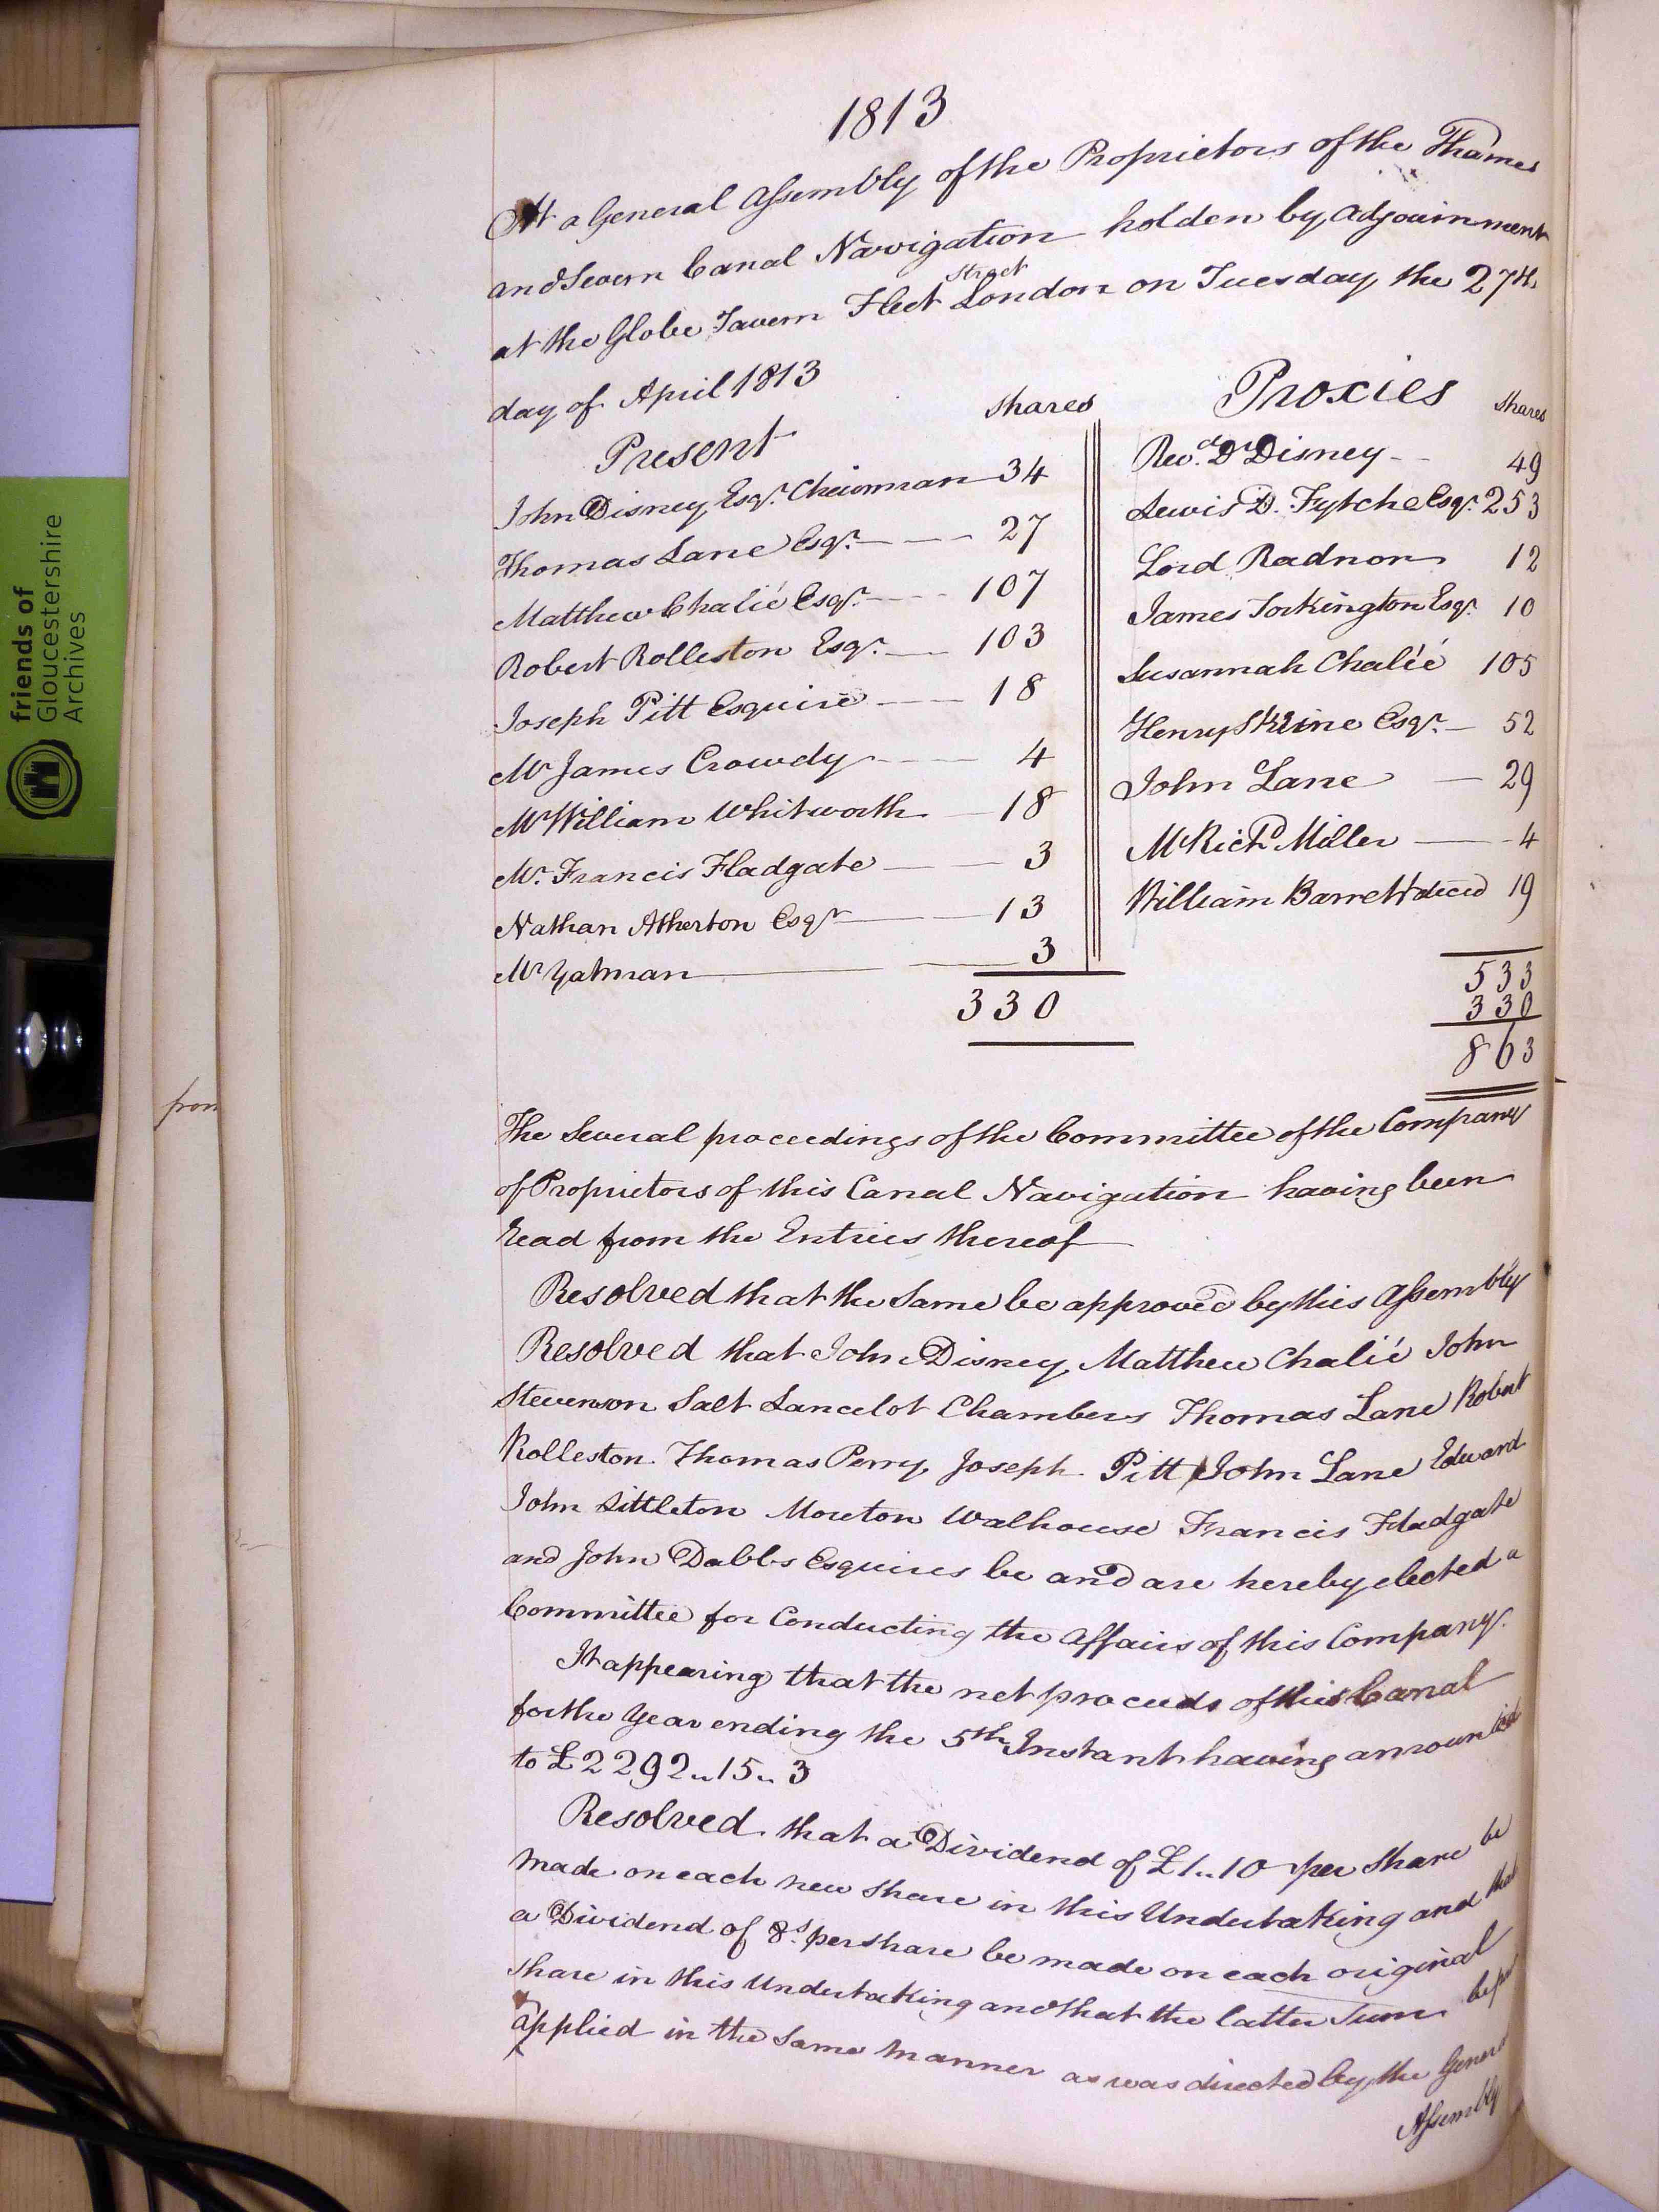 1813
At a General Assembly of the Proprietors of the Thames
and Severn Canal Navigation holden by adjournment
at the Globe Tavern Fleet Street London on Tuesday the 27th
day of April 1813
Present shares
John Disney Esqr. Chairman 34
Thomas Lane Esqr. 27
Matthew Chalié Esqr. 107
Robert Rolleston Esqr. 103
Joseph Pitt Esquire 18
Mr James Crowdy 4
Mr William Whitworth 18
Mr. Francis Fladgate 3
Nathan Atherton Esqr 13
Mr Yatman 3
330
Proxies shares
Revd. Dr Disney 49
Lewis D. Fytche Esqr. 253
Lord Radnor 12
James Torkington Esqr. 10
Susannah Chalié 105
Henry Skrine Esqr. 52
John Lane 29
Mr Richd Miller 4
William Barrett deced 19
533
330
863
The Several proceedings of the Committee of the Company
of Proprietors of this Canal Navigation having been
read from the Entries thereof
Resolved that the Same be approved by this Assembly
Resolved that John Disney, Matthew Chalié John
Stevenson Salt Lancelot Chambers Thomas Lane Robert
Rolleston Thomas Perry, Joseph Pitt John Lane Edward
John Littleton Moreton Walhouse Francis Fladgate
and John Dabbs Esquires be and are hereby elected a
Committee for Conducting the affairs of this Company.
It appearing that the net proceeds of this Canal
for the Year ending the 5th Instant having amounted
to £2292..15..3
Resolved that a Dividend of £1..10 per Share be
made on each new Share in this Undertaking and that
a Dividend of 8s. per share be made on each original
Share in this Undertaking and that the latter Sum be
applied in the Same Manner as was directed by the General
Assembly
from
friends of
Gloucestershire
Archives